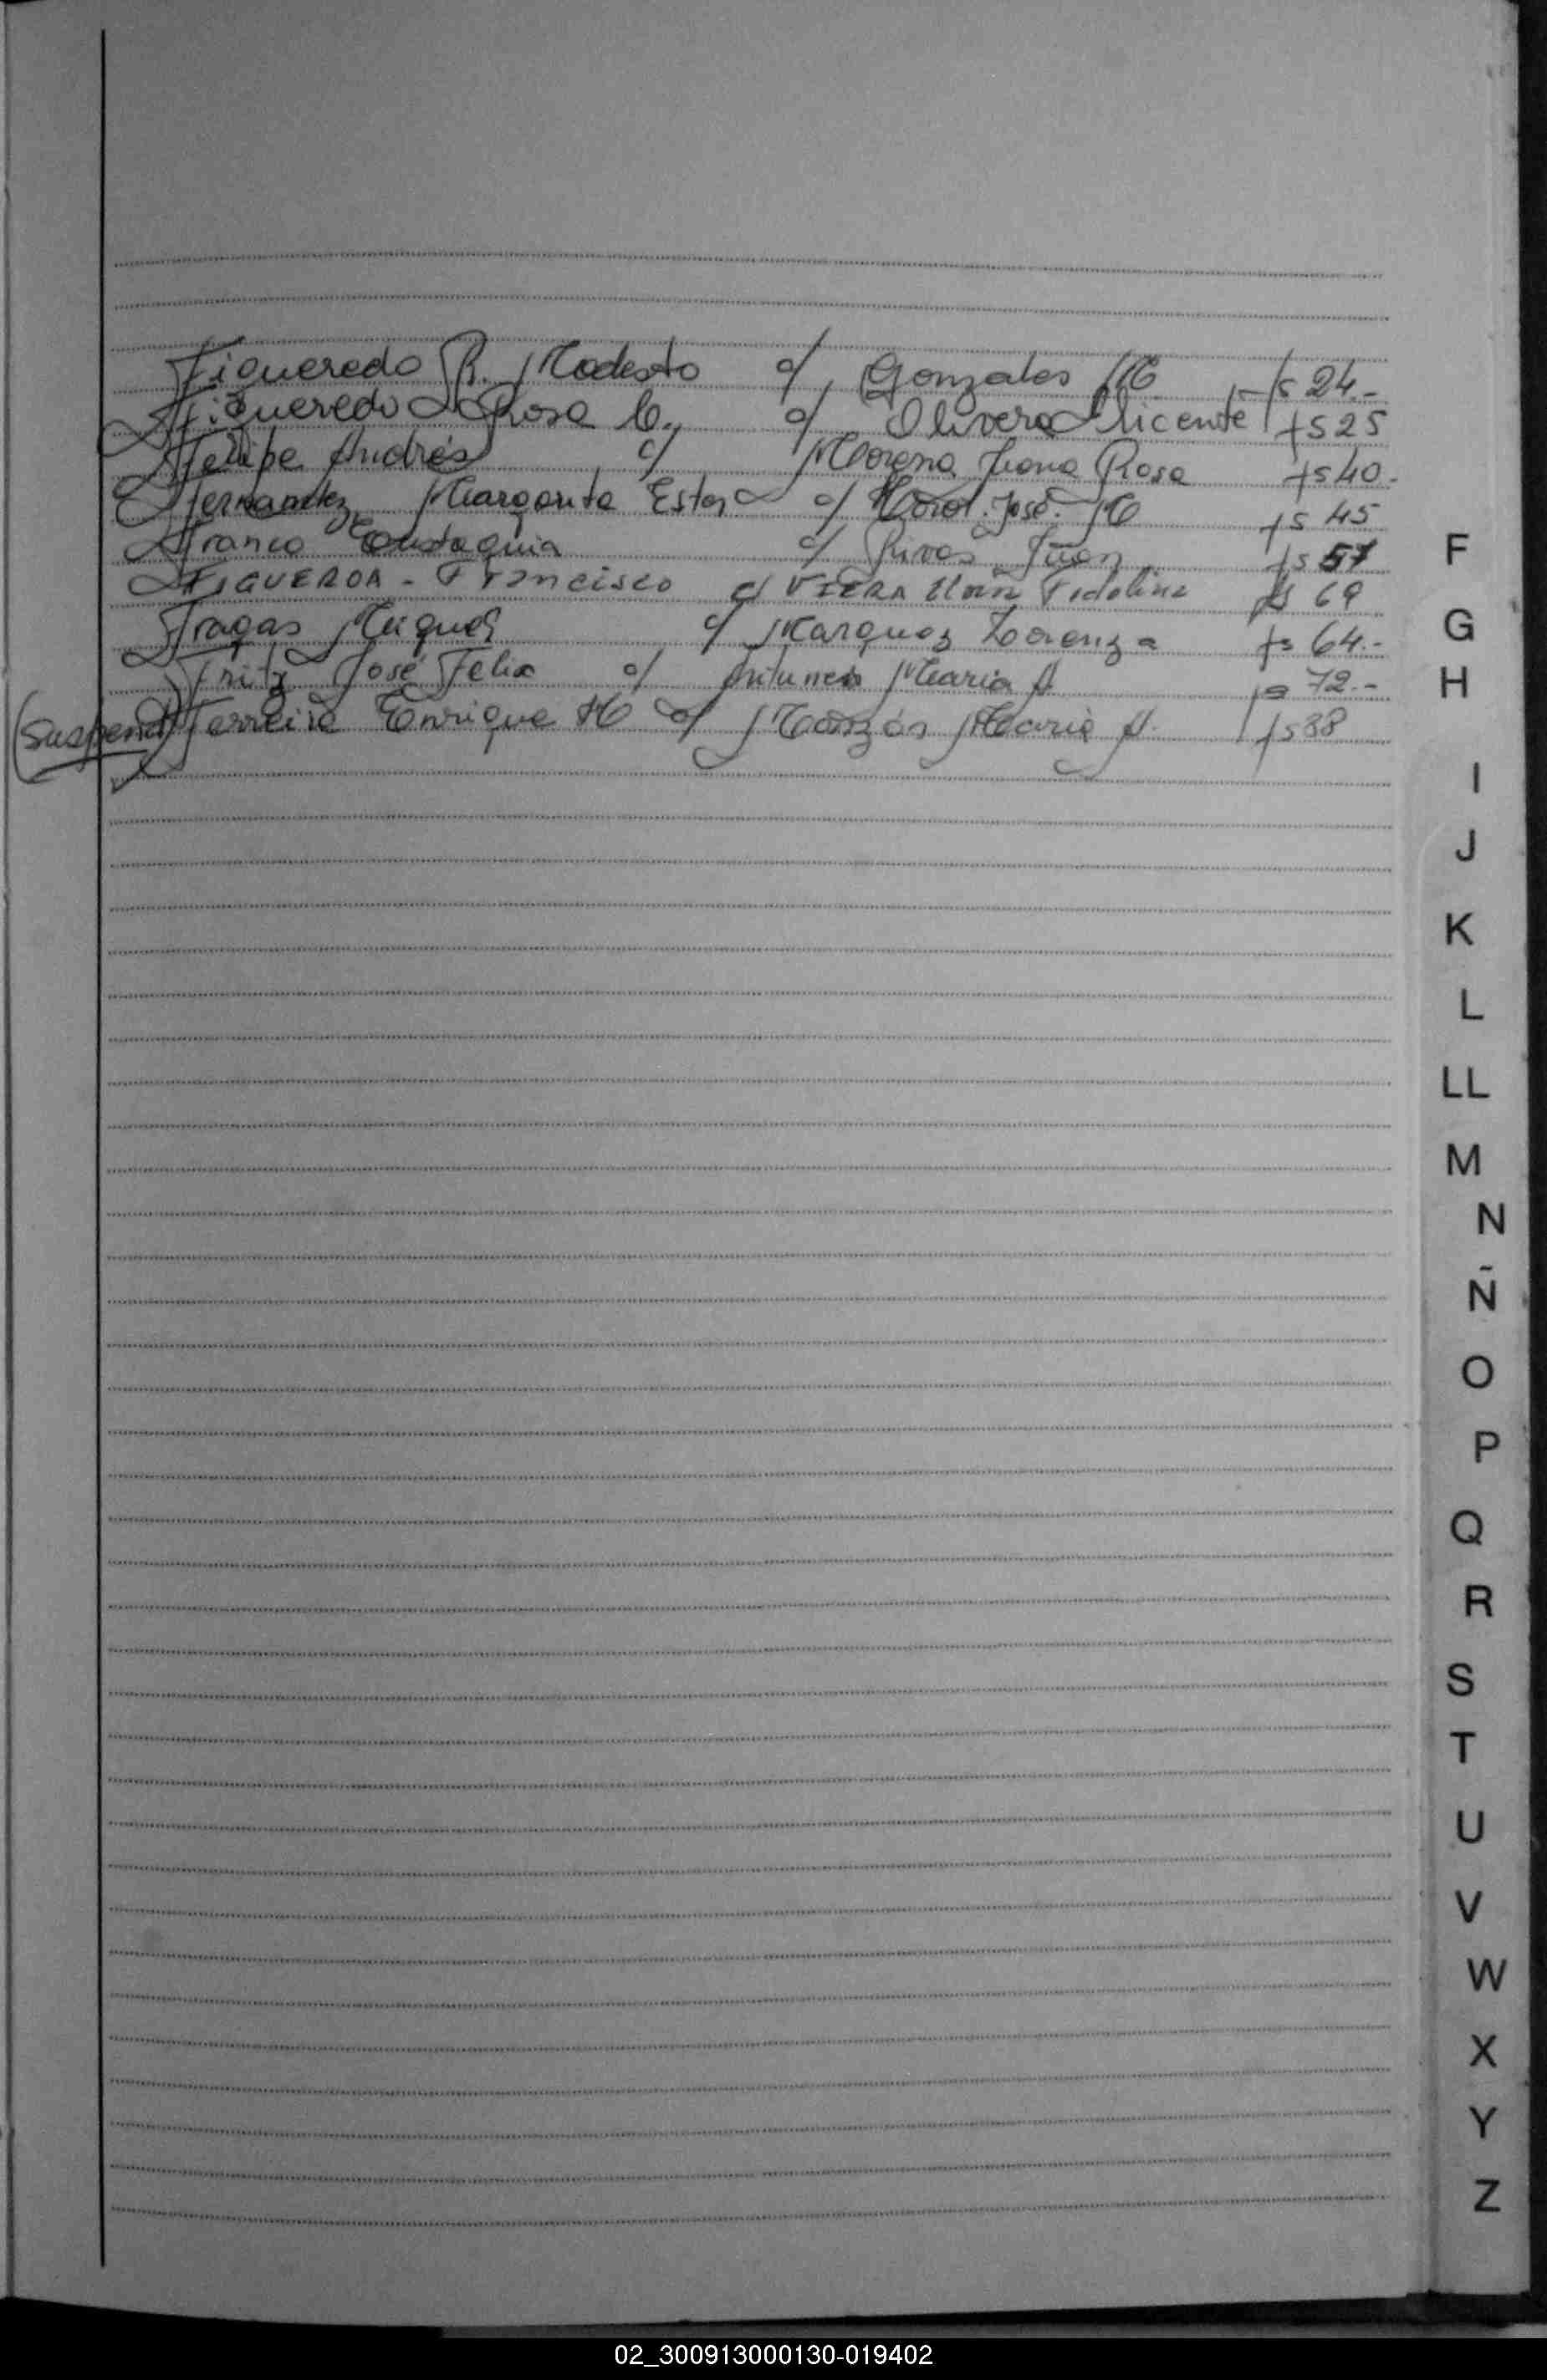 Figueredo R. Modesto c/ Gonzales M fs 24.-
Figueredo Rosa C. c/ Olivera Vicente fs 25
Felipe Andrés c/ Morena Juana Rosa fs 40.-
Fernandez Margarita Ester c/ José M fs 45
Franco Eustaquia c/ Rivas Juan fs 57
FIGUEROA - Francisco c/ VIERA Fidelina fs 69
Fragas Miguel c/ Marquez Lorenza fs 64.-
Fritz José Felix c/ Antunez Maria A fs 72.-
(Suspend) Ferreira Enrique M c/ Monzón Maria A. fs 38
F
G
H
I
J
K
L
LL
M
N
Ñ
O
P
Q
R
S
T
U
V
W
X
Y
Z
02_300913000130-019402